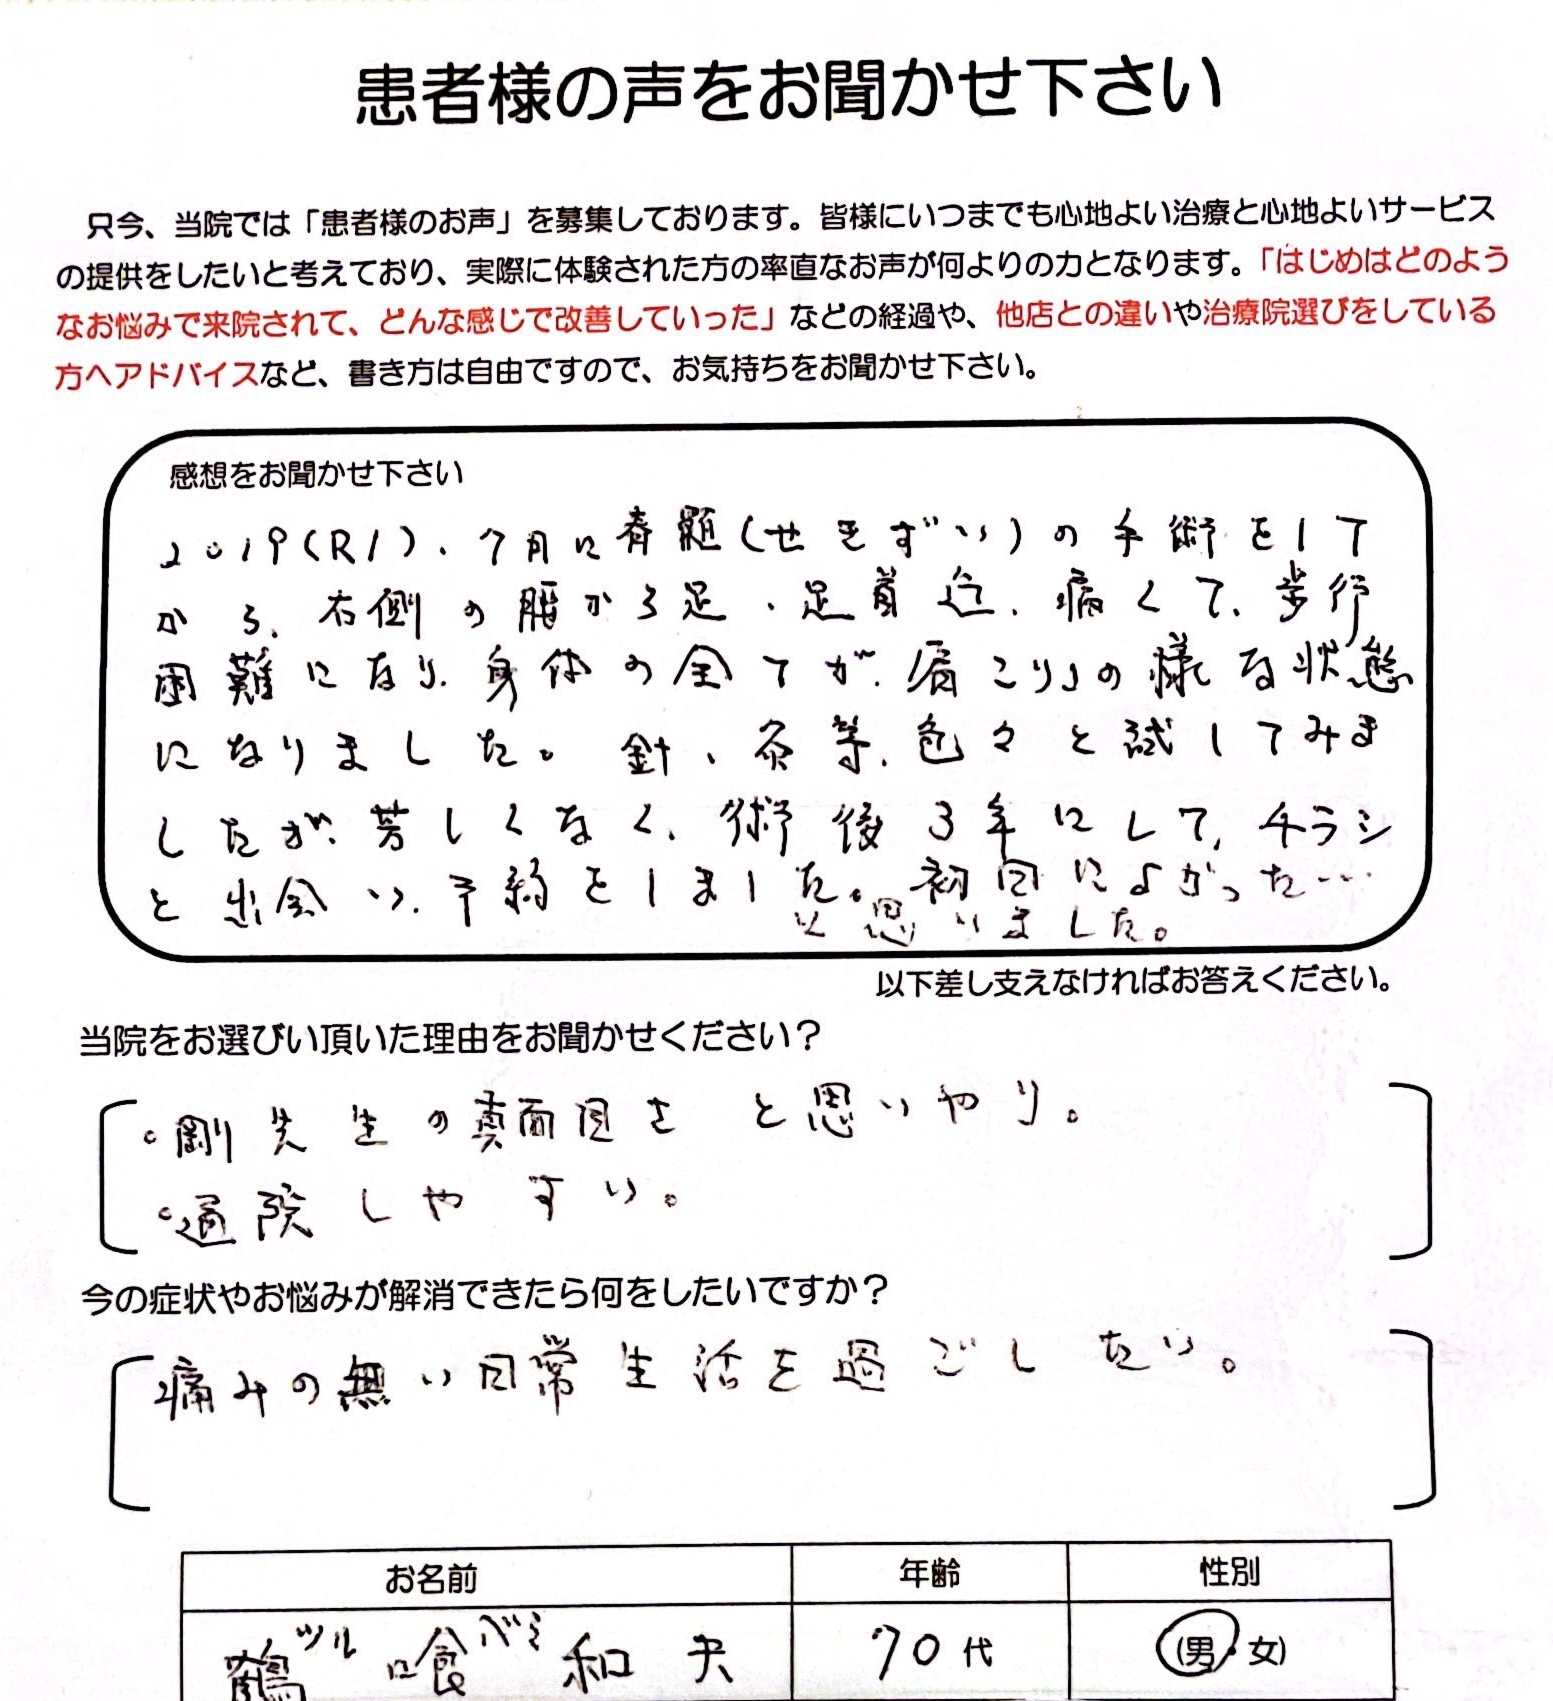 患者様の声をお聞かせ下さい
只今、当院では「患者様のお声」を募集しております。皆様にいつまでも心地よい治療と心地よいサービス
の提供をしたいと考えており、実際に体験された方の率直なお声が何よりの力となります。「はじめはどのよう
なお悩みで来院されて、どんな感じで改善していった」などの経過や、他店との違いや治療院選びをしている
方へアドバイスなど、書き方は自由ですので、お気持ちをお聞かせ下さい。
感想をお聞かせ下さい
2019(R1)、7月に脊髄(せきずい)の手術をして
から、右側の腰から足、足首迄、痛くて、歩行
困難になり、身体の全てが、肩こり」の様な状態
になりました。針、灸等、色々と試してみま
したが、芳しくなく、術後3年にして、チラシ
と出会い、予約をしました。初回によかった…
と思いました。
以下差し支えなければお答えください。
当院をお選びい頂いた理由をお聞かせください？
・剛先生の真面目さと思いやり。
・通院しやすい。
今の症状やお悩みが解消できたら何をしたいですか？
痛みの無い日常生活を過ごしたい。
お名前 年齢 性別
鶴ツル喰バミ和夫 70代 (男・女)